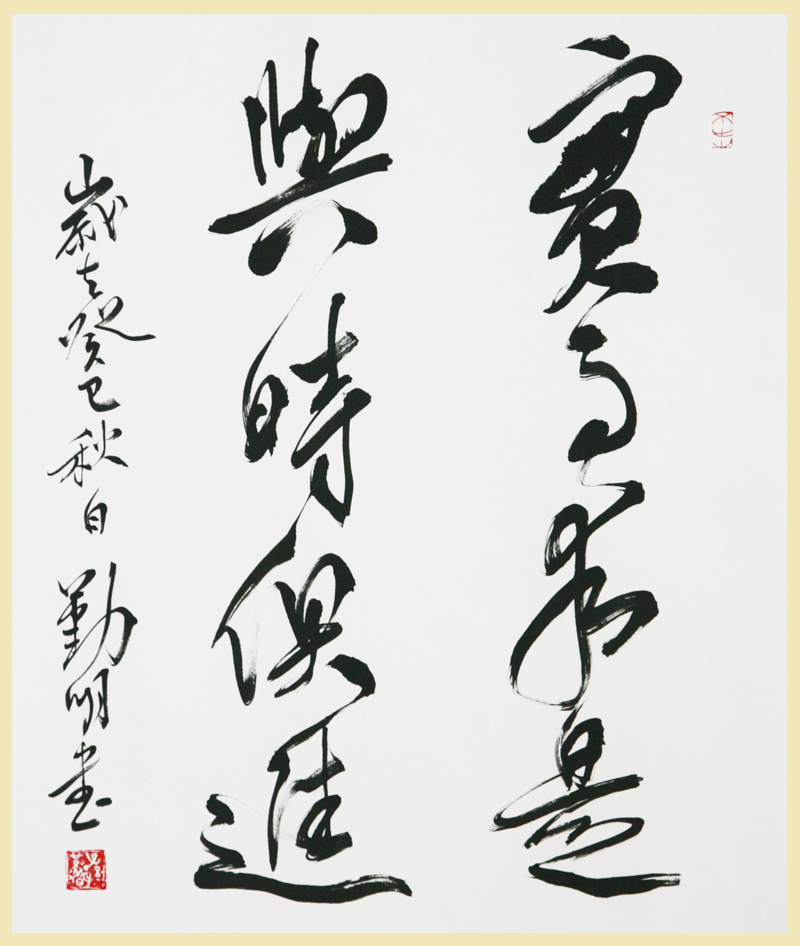 實事求是
與時俱進
歲在癸巳秋日 勤明書